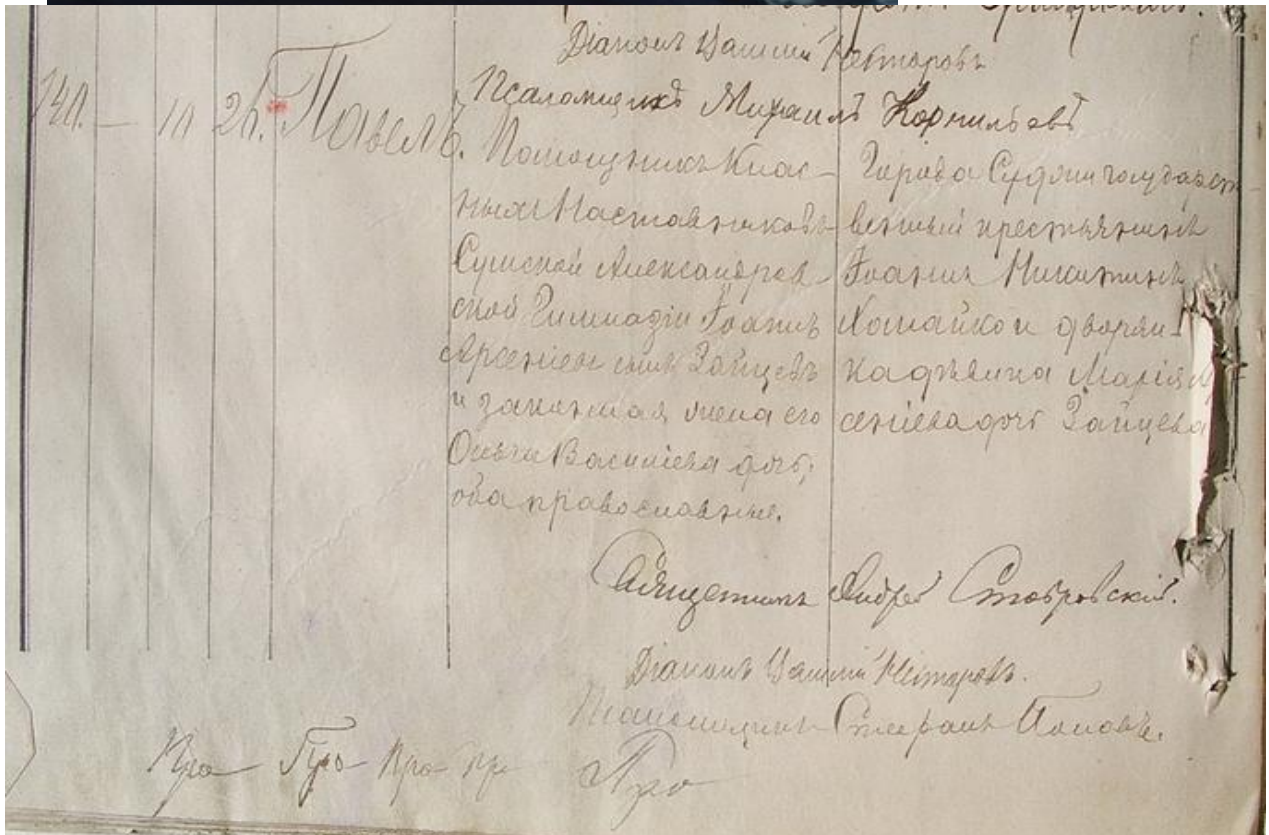 Діаконъ Нестеровъ
Псаломщикъ Михаилъ Корнильевъ
140. — 10 26. Павелъ.
Помощникъ Клас-
ныхъ Наставниковъ
Сумской Александров-
ской Гимназіи Іоаннъ
Арсеніевъ сынъ Зайцевъ
и законная жена его
Ольга Василіева дочь,
оба православные.
Города Суджи государст-
венный крестьянинъ
Іоаннъ Никитинъ
и дворян-
ка дѣвица Марія Ар
сеніева дочь Зайцева
Священникъ Андрей Ставровскій.
Діаконъ Нестеровъ.
Псаломщикъ Стефанъ Поповъ.
Про— Про— Про— Про Про